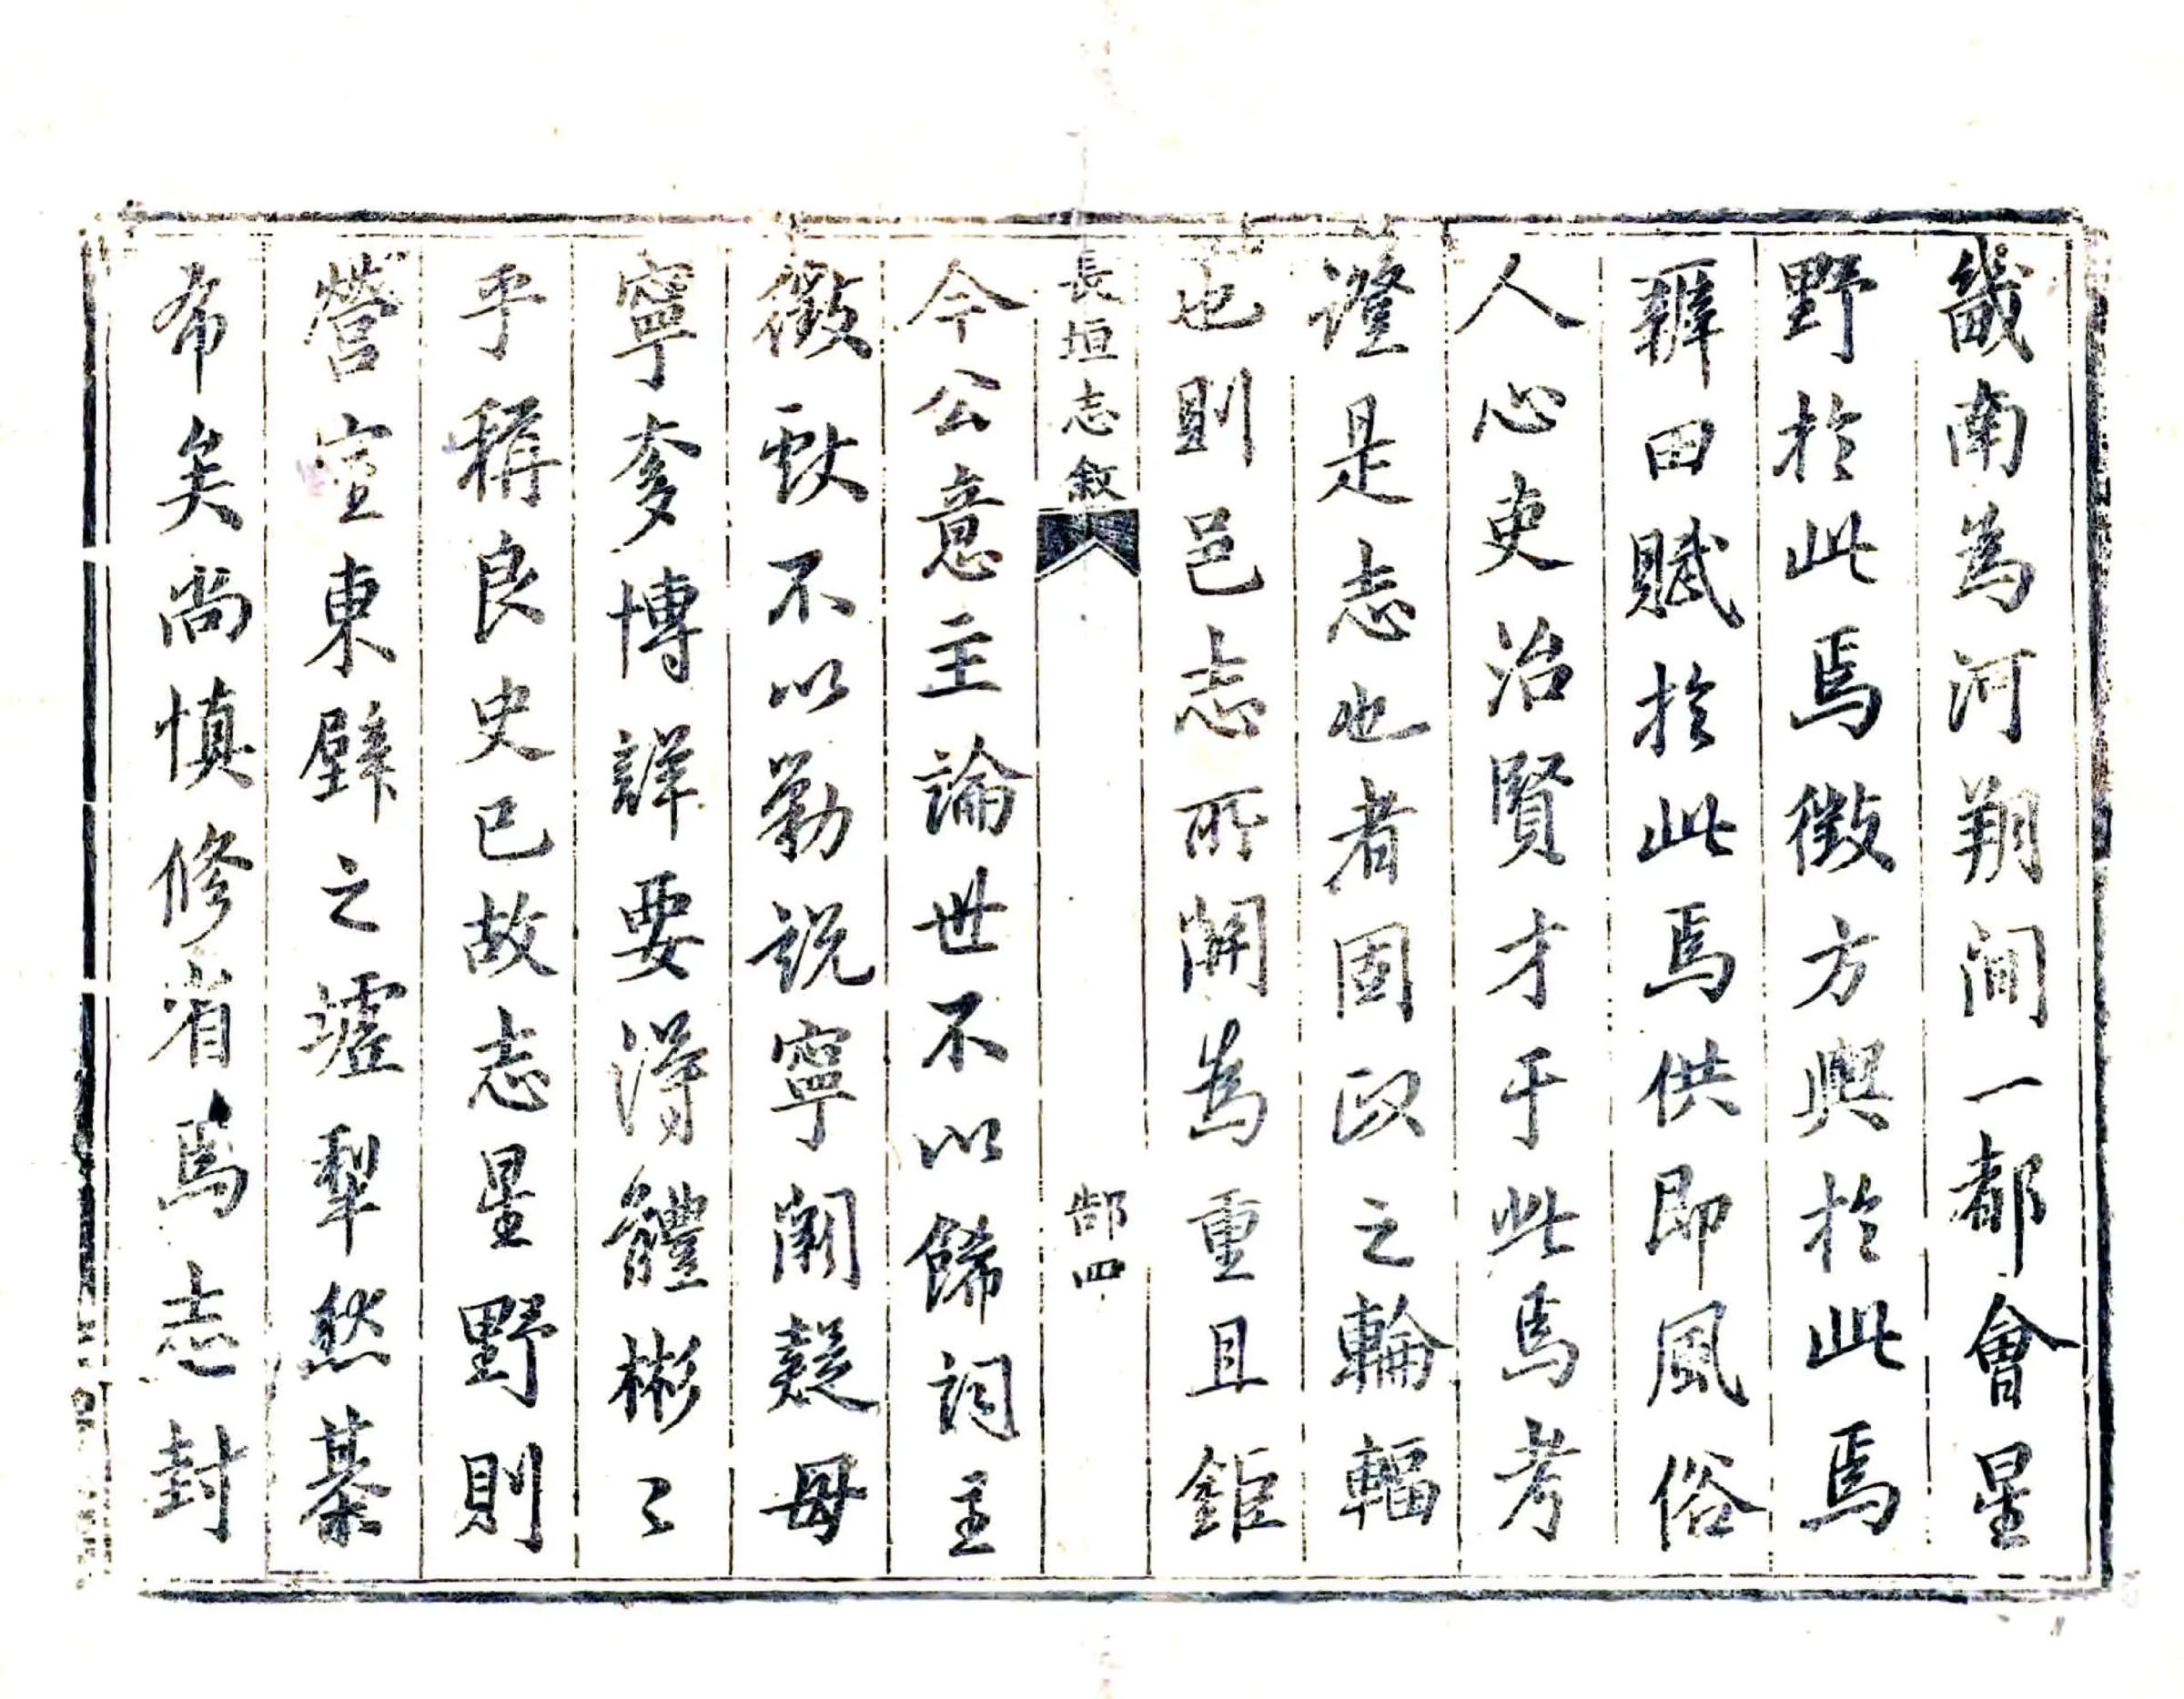 畿南為河朔間一都會星
野於此焉徵方輿於此焉
辨田賦於此焉供即風俗
人心吏治賢才于此焉考
證是志也者固政之輪輻
也則邑志所關為重且鉅
長垣志敘
郜四
今公意主論世不以餙詞主
徵獻不以勦說寧闕疑毋
寧奓博詳要得體彬〻
乎稱良史已故志星野則
營室東壁之壚犁然棊
布矣尚慎修省焉志封